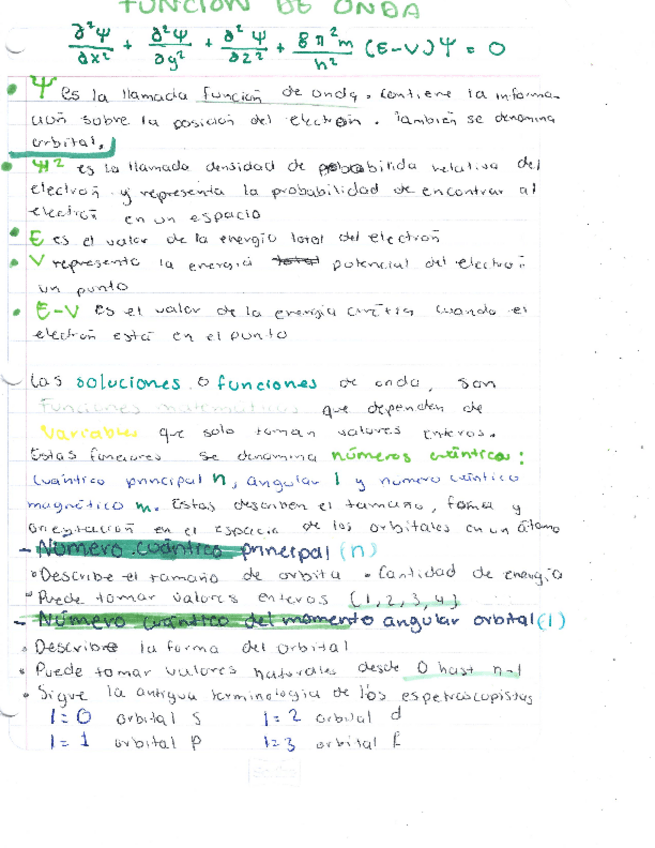 FUNCIÓN DE ONDA
∂²Ψ/∂x² + ∂²Ψ/∂y² + ∂²Ψ/∂z² + 8π²m/h² (E-V)Ψ = 0
• Ψ es la llamada función de onda. Contiene la informa-
ción sobre la posición del electrón. También se denomina
orbital.
• Ψ² es la llamada densidad de probabilida relativa del
electrón y representa la probabilidad de encontrar al
electrón en un espacio
• E es el valor de la energía total del electrón
• V representa la energía total potencial del electrón
un punto
• E-V es el valor de la energía cinética cuando el
electrón está en el punto
Las soluciones o funciones de onda, son
funciones matemáticas que dependen de
variables que solo toman valores enteros.
Estas funciones se denomina números cuánticos:
Cuántico principal n, angular l y numero cuántico
magnético m. Estas describen el tamaño, forma y
orientación en el espacio de los orbitales en un átomo
- Número cuántico principal (n)
• Describe el tamaño de orbita • Cantidad de energía
• Puede tomar valores enteros [1,2,3,4]
- Número cuántico del momento angular orbital (l)
• Describre la forma del orbital
• Puede tomar valores naturales desde 0 hast n-1
• Sigue la antigua terminología de los espetroscopistas
l=0 orbital s l=2 orbital d
l=1 orbital p l=3 orbital f